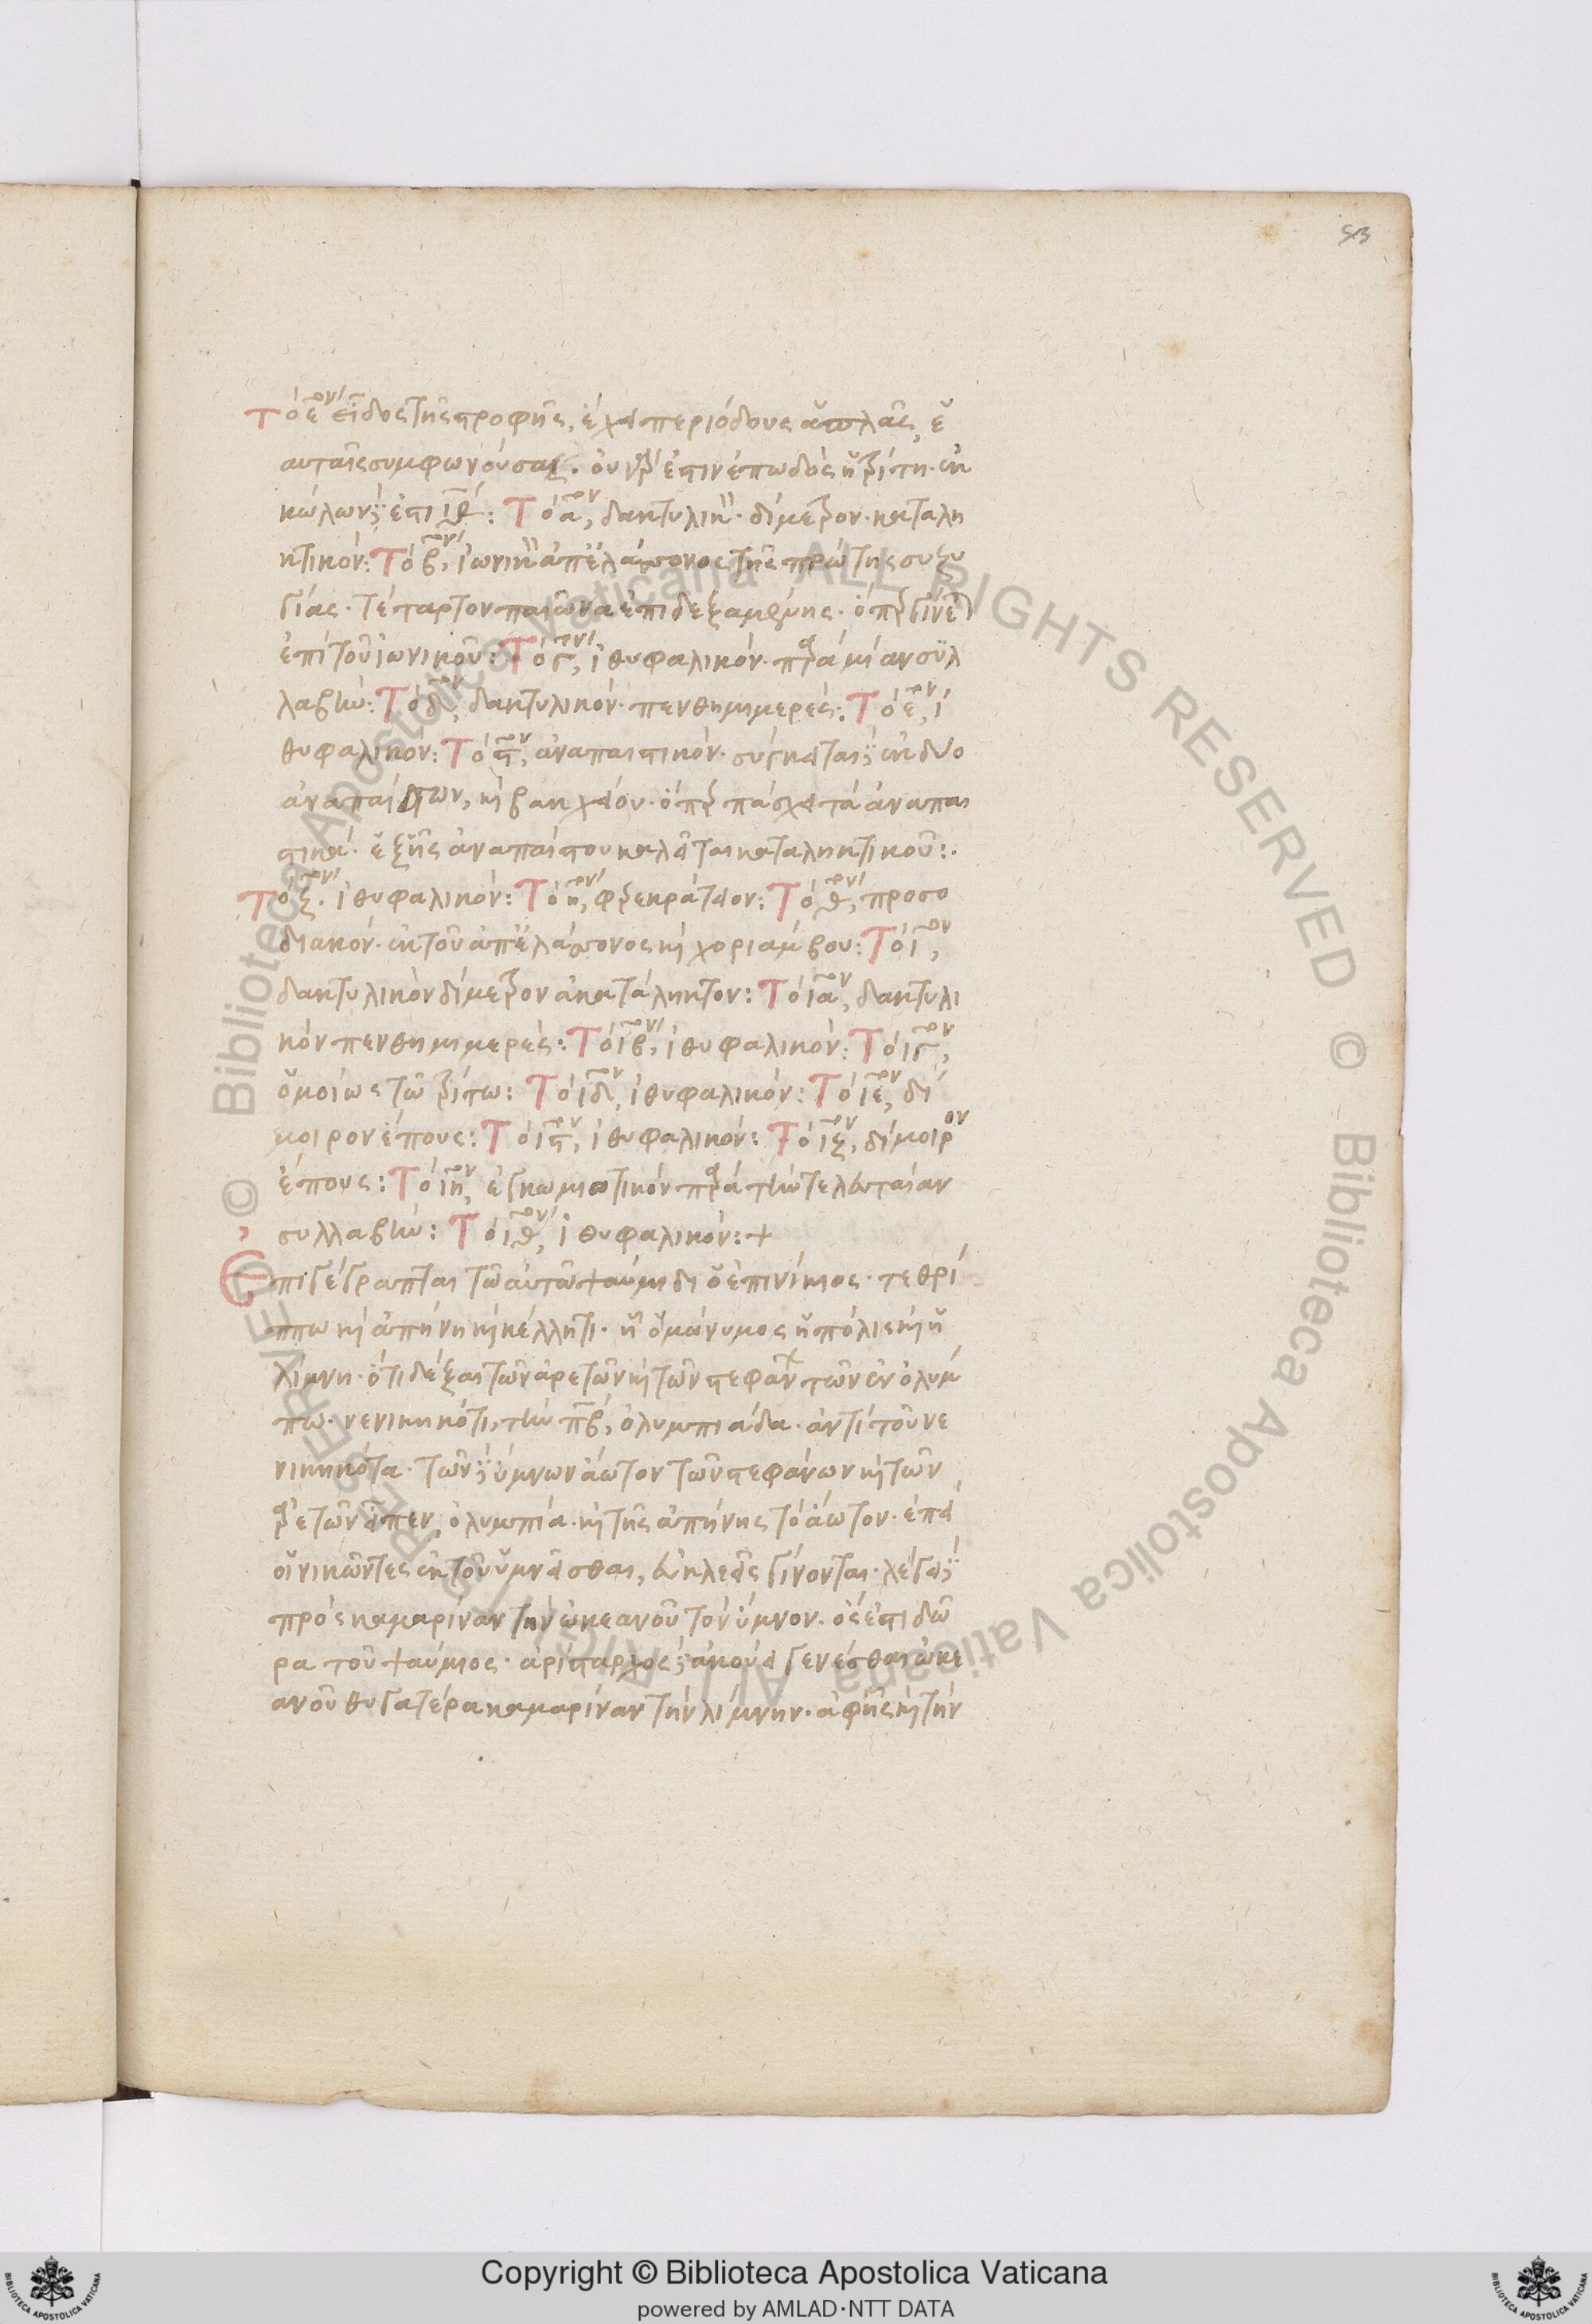 53
Τὸ ε̅ον εἶδος τῆς στροφῆς, ἔχει περιόδους ἁπλᾶς,
αὐταῖς συμφωνούσας. οὐ γάρ ἐστιν ἐπωδὸς ἡ τρίτη. ἐκ
κώλων δέ ἐστι ι̅θ: Τὸ α̅ον, δακτυλικὸν. δίμετρον. καταλη
κτικόν: Τὸ β̅ον, ἰωνικὸν ἀπ' ἐλάσσονος τῆς πρώτης συζυ
γίας. τέταρτον παιῶνα ἐπιδεξαμένης. ὅπερ γίνεται
ἐπὶ τοῦ ἰωνικοῦ: Τὸ γ̅ον, ἰθυφαλικόν. παρὰ μίαν συλ
λαβήν: Τὸ δ̅ον, δακτυλικόν. πενθημιμερές: Τὸ ε̅ον, ἰ
θυφαλικόν: Τὸ ς̅ον, ἀναπαιστικόν. σύγκειται δὲ ἐκ δύο
ἀναπαίστων, καὶ βακχείου. ὅπερ πάσχει τὰ ἀναπαι
στικά. ἑξῆς ἀναπαίστου καλεῖται καταληκτικοῦ:.
Τὸ ζ̅ον. ἰθυφαλικόν: Τὸ η̅ον, φερεκράτειον: Τὸ θ̅ον, προσο
διακόν. ἐκ τοῦ ἀπ' ἐλάσσονος καὶ χοριάμβου: Τὸ ι̅ον,
δακτυλικὸν δίμετρον ἀκατάληκτον: Τὸ ι̅α̅ον, δακτυλι
κὸν πενθημιμερές: Τὸ ι̅β̅ον, ἰθυφαλικόν: Τὸ ι̅γ̅ον,
ὁμοίως τῶ τρίτω: Τὸ ι̅δ̅ον, ἰθυφαλικόν: Τὸ ι̅ε̅ον, δί
μοιρον ἔπους: Τὸ ι̅ς̅ον, ἰθυφαλικόν: Τὸ ι̅ζ̅ον, δίμοιρον
ἔπους: Τὸ ι̅η̅ον, ἐγκωμιαστικὸν παρὰ τὴν τελευταίαν
συλλαβήν: Τὸ ι̅θ̅ον, ἰθυφαλικόν:+
Ἐπιγέγραπται τῶ αὐτῶ ψαύμιδι ὁ ἐπινίκιος. τεθρί
ππω καὶ ἀπήνη καὶ κέλλητι. ἡ ὁμώνυμος ἡ πόλις καὶ ἡ
λίμνη. ὅτι δέξαι τῶν ἀρετῶν καὶ τῶν στεφάνων τῶν ἐν ὀλύμ
πω. νενικηκότι, τὴν π̅β, ὀλυμπιάδα. ἀντὶ τοῦ νε
νικηκότα. τῶν δὲ ὕμνων ἄωτον τῶν στεφάνων καὶ τῶν
ἀρετῶν εἶπεν, ὀλυμπία. καὶ τῆς ἀπήνης τὸ ἄωτον. ἐπεὶ
οἱ νικῶντες ἐκ τοῦ ὑμνεῖσθαι, εὐκλεεῖς γίνονται. λέγει δὲ
πρὸς καμαρίναν τὴν ὠκεανοῦ τὸν ὕμνον. ὅς ἐστι δῶ
ρα τοῦ ψαύμιος. ἀρίσταρχος δὲ ἀκούει γενέσθαι ὠκε
ανοῦ θυγατέρα καμαρίναν τὴν λίμνην. ἀφ' ἧς καὶ τὴν
© Biblioteca Apostolica Vaticana ALL RIGHTS RESERVED
Copyright © Biblioteca Apostolica Vaticana
powered by AMLAD·NTT DATA